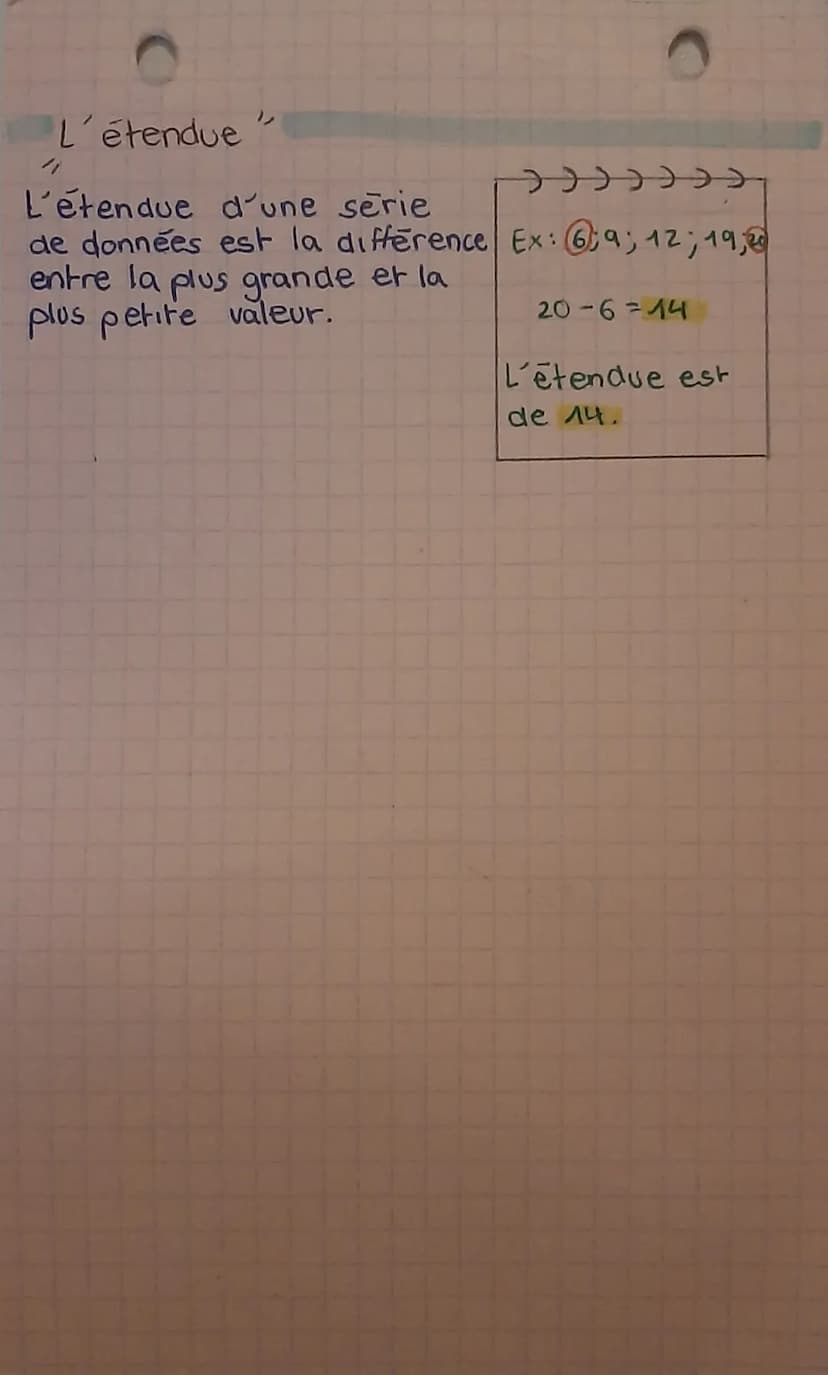 L'étendue
L'étendue d'une série
de données est la différence
entre la plus grande et la
plus petite valeur.
Ex: 6; 9; 12; 19; 20
20-6=14
L'étendue est
de 14.